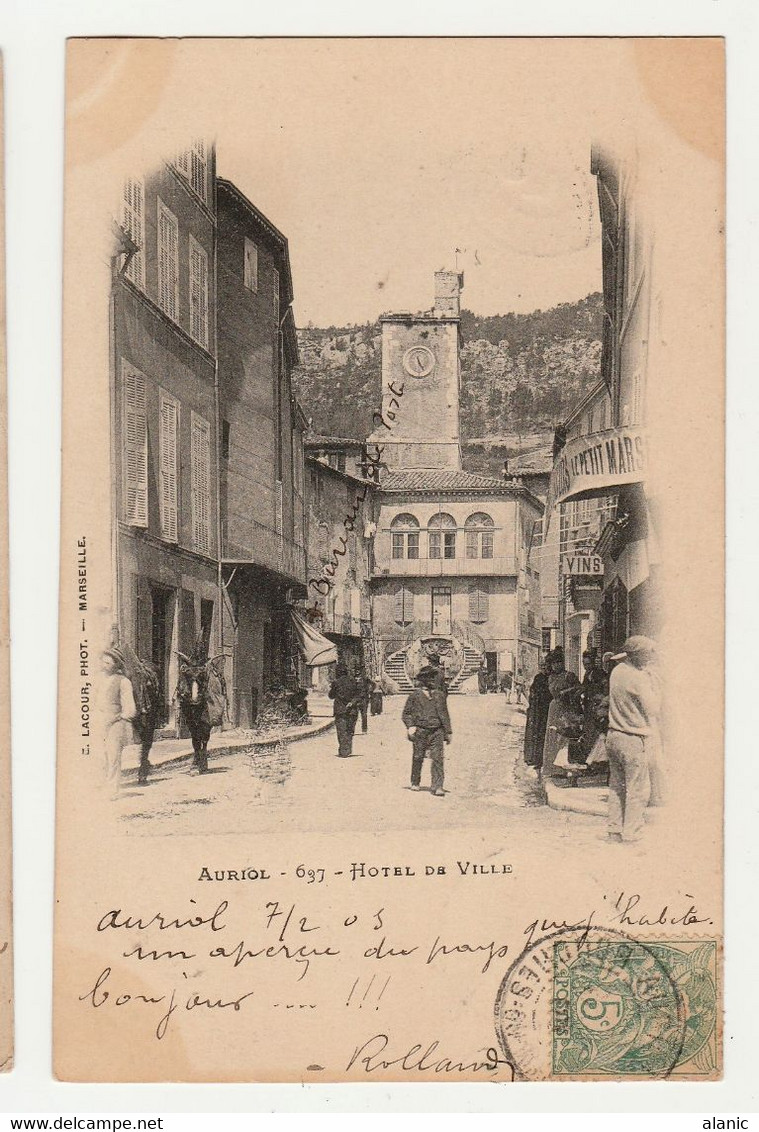 LE PETIT MARS
VINS
+ Bureau de Poste
E. LACOUR, PHOT. — MARSEILLE.
AURIOL - 637 - HOTEL DE VILLE
auriol 7/2 05
un aperçu du pays que j'habite.
bonjour ... !!!
- Rolland
5c
POSTES
alanic